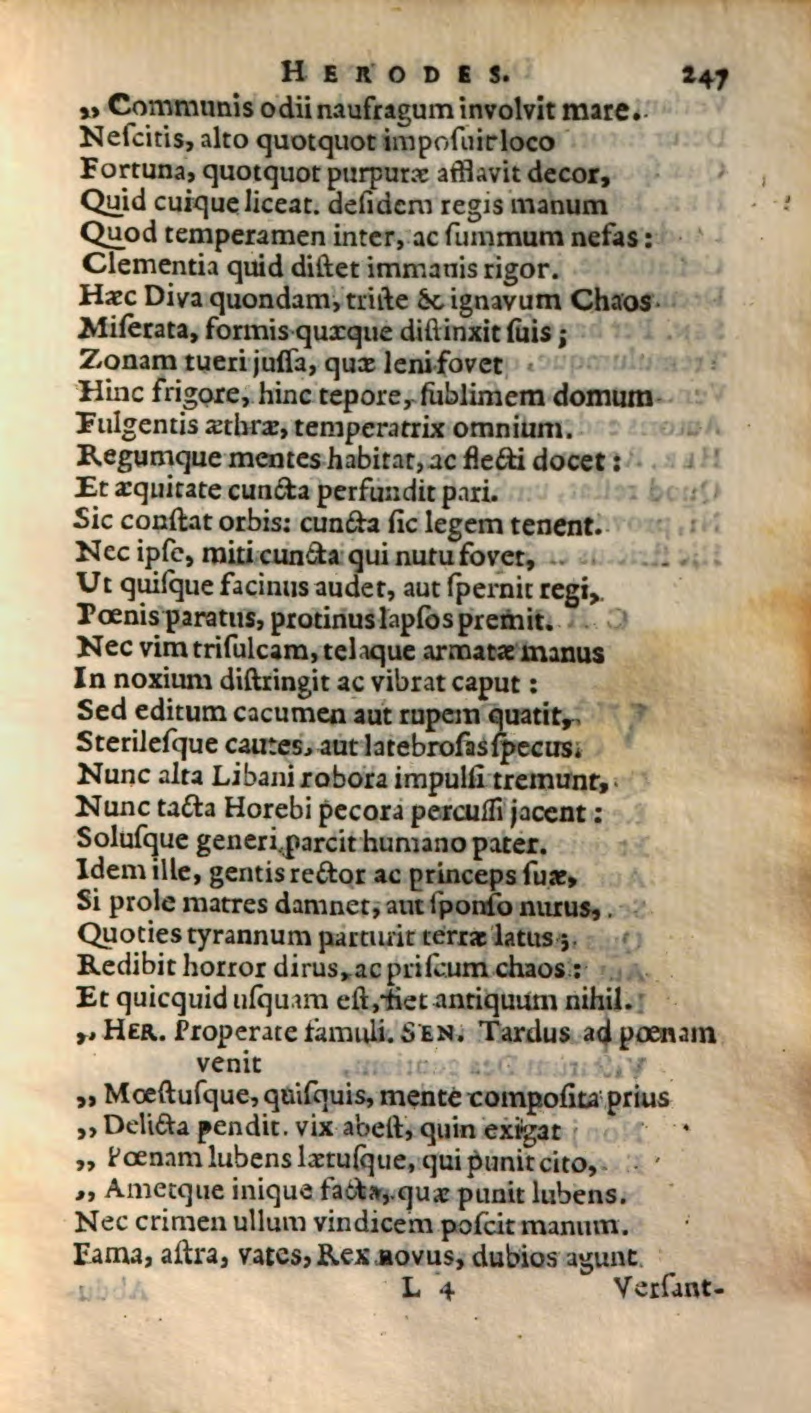 HERODES. 247
,, Communis odii naufragum involvit mare.
Neſcitis, alto quotquot impoſuit loco
Fortuna, quotquot purpuræ afflavit decor,
Quid cuique liceat. deſidem regis manum
Quod temperamen inter, ac ſummum nefas:
Clementia quid diſtet immanis rigor.
Hæc Diva quondam, triſte & ignavum Chaos
Miſerata, formis quæque diſtinxit ſuis;
Zonam tueri juſſa, quæ leni fovet
Hinc frigore, hinc tepore, ſublimem domum
Fulgentis æthræ, temperatrix omnium.
Regumque mentes habitat, ac flecti docet:
Et æquitate cuncta perfundit pari.
Sic conſtat orbis: cuncta ſic legem tenent.
Nec ipſe, miti cuncta qui nutu fovet,
Ut quiſque facinus audet, aut ſpernit regi,
Pœnis paratus, protinus lapſos premit.
Nec vim triſulcam, telaque armatæ manus
In noxium diſtringit ac vibrat caput:
Sed editum cacumen aut rupem quatit,
Sterileſque cautes, aut latebroſas ſpecus.
Nunc alta Libani robora impulſi tremunt,
Nunc tacta Horebi pecora percuſſi jacent:
Soluſque generi parcit humano pater.
Idem ille, gentis rector ac princeps ſuæ,
Si prole matres damnet, aut ſponſo nurus,
Quoties tyrannum parturit terræ latus;
Redibit horror dirus, ac priſcum chaos:
Et quicquid uſquam eſt, fiet antiquum nihil.
,, HER. Properate famuli. SEN. Tardus ad pœnam
venit
,, Mœſtuſque, quiſquis, mente compoſita prius
,, Delicta pendit. vix abeſt, quin exigat
,, Pœnam lubens lætuſque, qui punit cito,
,, Ametque inique facta, quæ punit lubens.
Nec crimen ullum vindicem poſcit manum.
Fama, aſtra, vates, Rex novus, dubios agunt
L 4 Verſant-